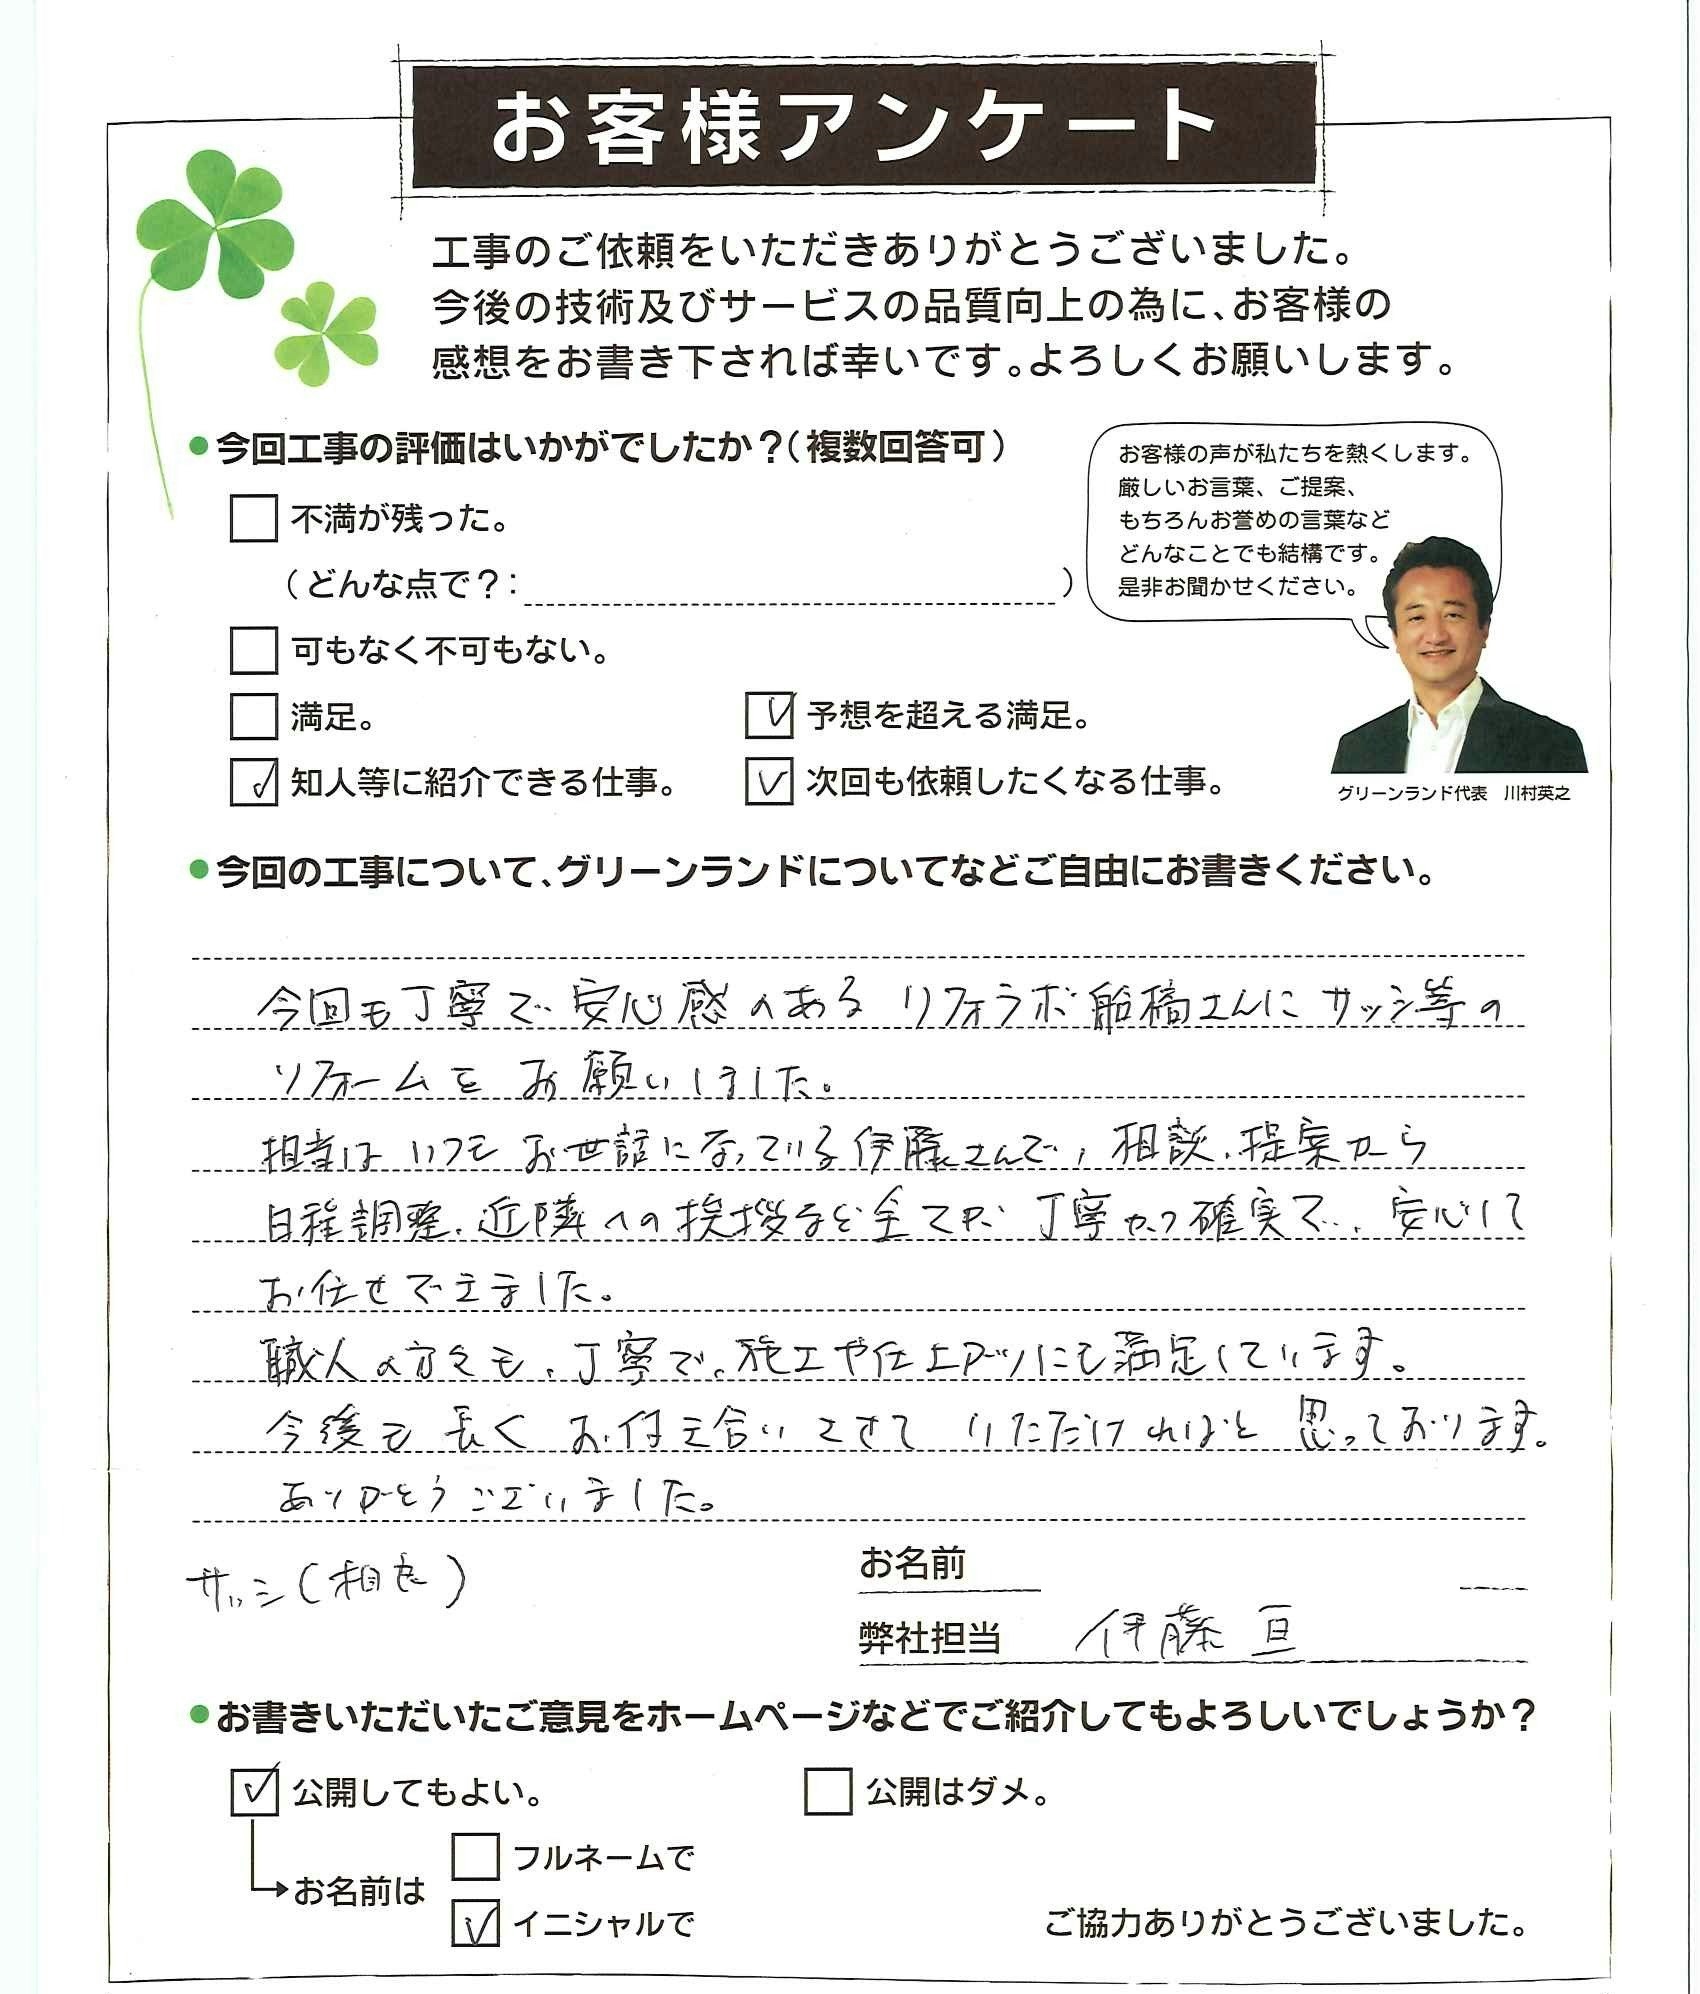 お客様アンケート
工事のご依頼をいただきありがとうございました。
今後の技術及びサービスの品質向上の為に、お客様の
感想をお書き下されば幸いです。よろしくお願いします。
●今回工事の評価はいかがでしたか？（複数回答可）
不満が残った。
（どんな点で？：　）
可もなく不可もない。
満足。
予想を超える満足。
知人等に紹介できる仕事。
次回も依頼したくなる仕事。
お客様の声が私たちを熱くします。
厳しいお言葉、ご提案、
もちろんお誉めの言葉など
どんなことでも結構です。
是非お聞かせください。
グリーンランド代表　川村英之
●今回の工事について、グリーンランドについてなどご自由にお書きください。
今回も丁寧で安心感のあるリフォラボ船橋さんにサッシ等の
リフォームをお願いしました。
担当はいつもお世話になっている伊藤さんで、相談、提案から
日程調整、近隣への挨拶など全てが丁寧かつ確実で、安心して
お任せできました。
職人の方々も、丁寧で、施工や仕上がりにも満足しています。
今後も長くお付き合いさせていただければと思っております。
ありがとうございました。
サッシ（相良）
お名前
弊社担当　伊藤 亘
●お書きいただいたご意見をホームページなどでご紹介してもよろしいでしょうか？
公開してもよい。
公開はダメ。
お名前は
フルネームで
イニシャルで
ご協力ありがとうございました。